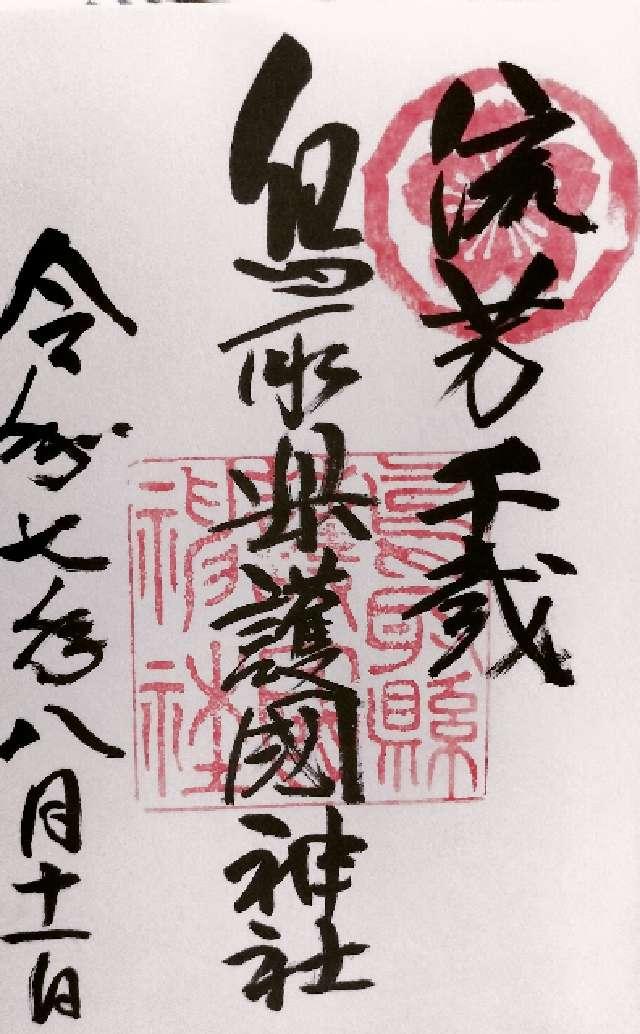 流芳千歳
鳥取県護國神社
令和七年八月十一日
鳥取縣護國神社